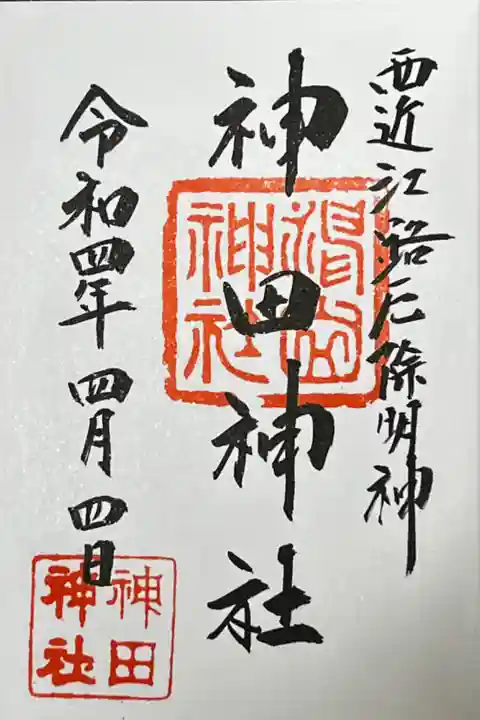 西近江路厄除明神
神田神社
神社
令和四年 四月 四日
神田
神社